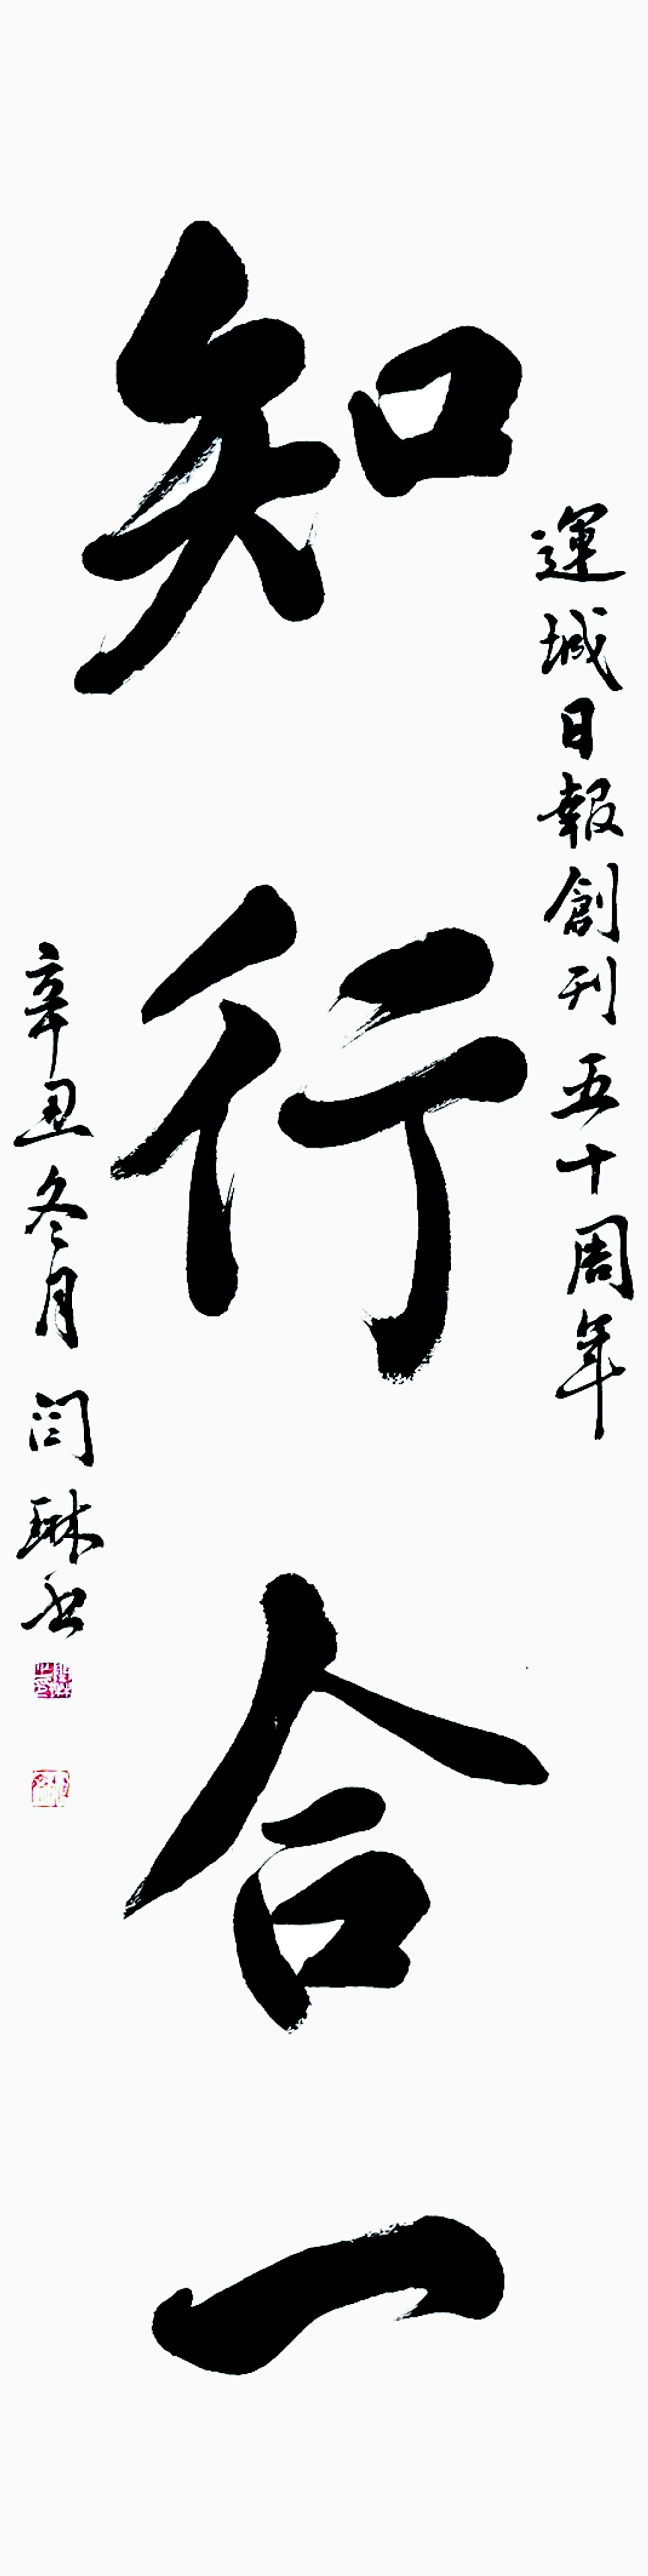 運城日報創刊五十周年
知行合一
辛丑冬月 闫琳书